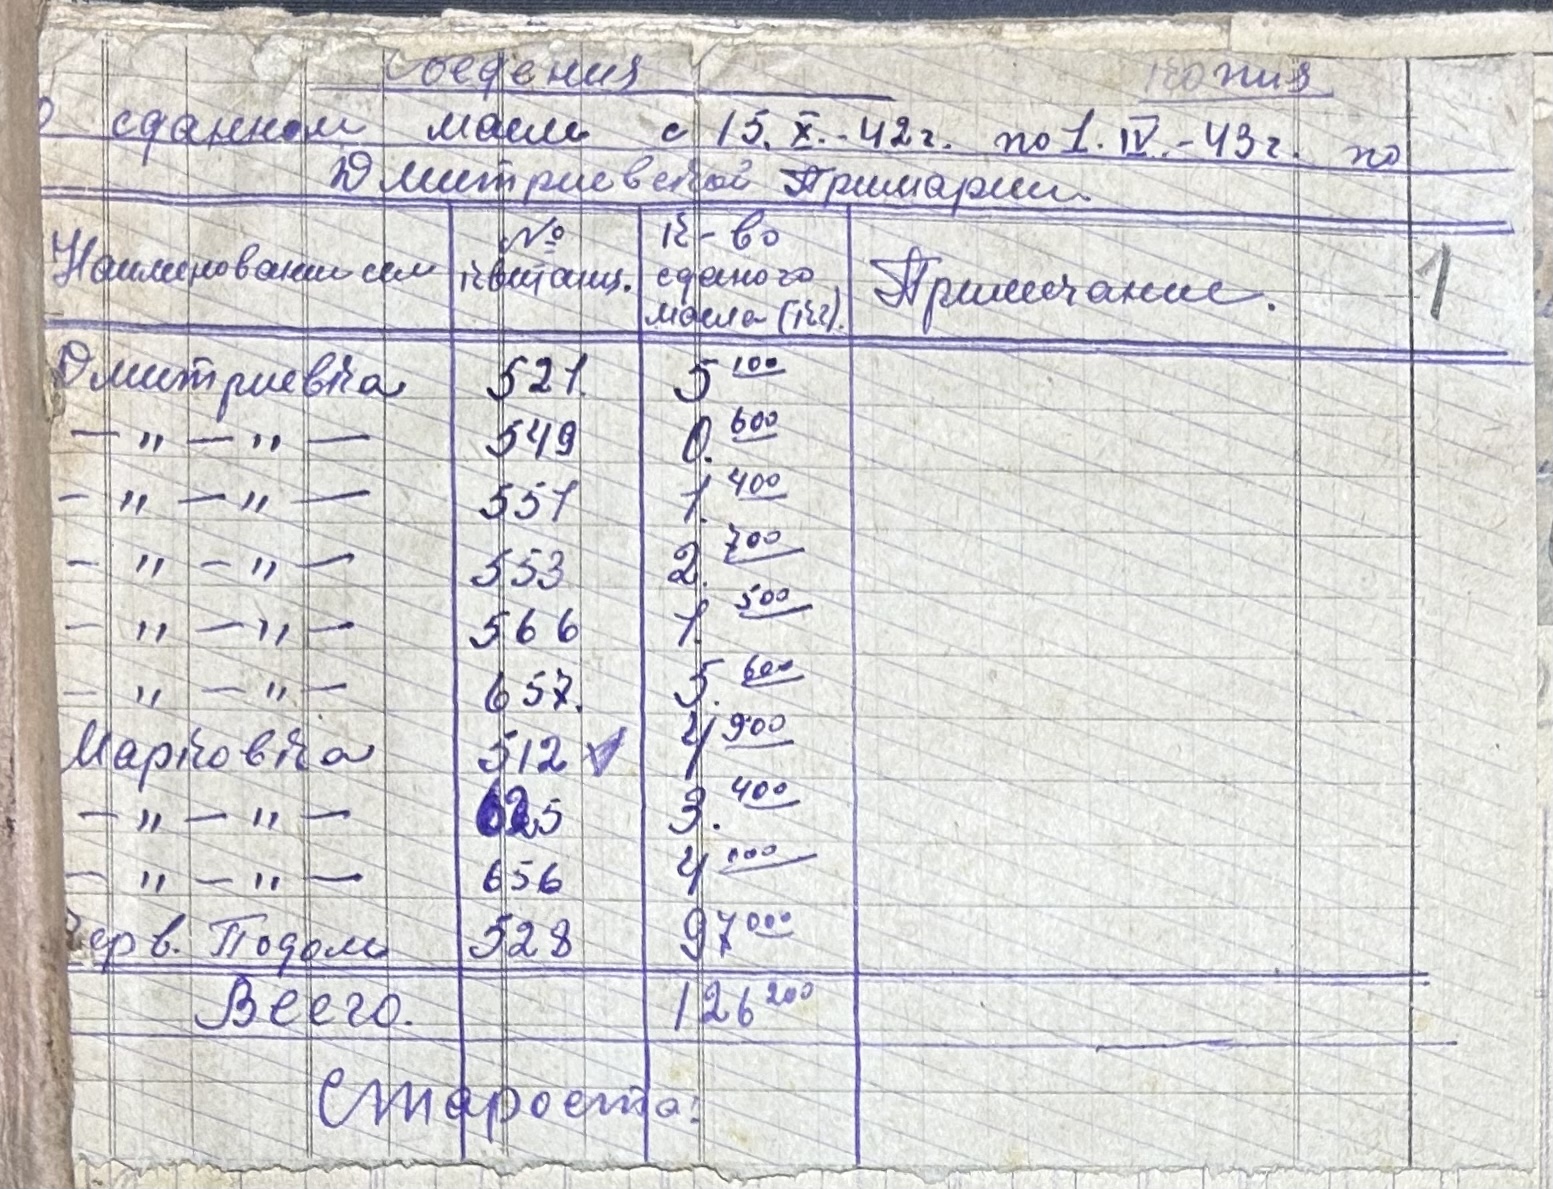 Сведения копия
о сданном масле с 15.X.-42г. по 1.IV.-43г. по
Дмитриевской Примарии.
Наименование сел № квитанц. К-во сданого масла (кг). Примечание. 1
Дмитриевка 521. 5 100
— „ — „ — 549 0. 600
— „ — „ — 551 1. 400
— „ — „ — 553 2. 700
— „ — „ — 566 1. 500
— „ — „ — 657. 5. 600
Марковка 512 4 900
— „ — „ — 625 3. 400
— „ — „ — 656 4 000
Черв. Подол 528 97 000
Всего. 126 200
Староста: